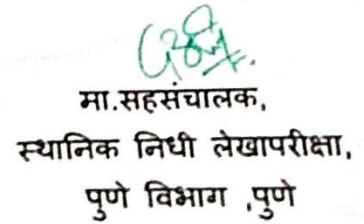 मा.सहसंचालक,
स्थानिक निधी लेखापरीक्षा,
पुणे विभाग ,पुणे